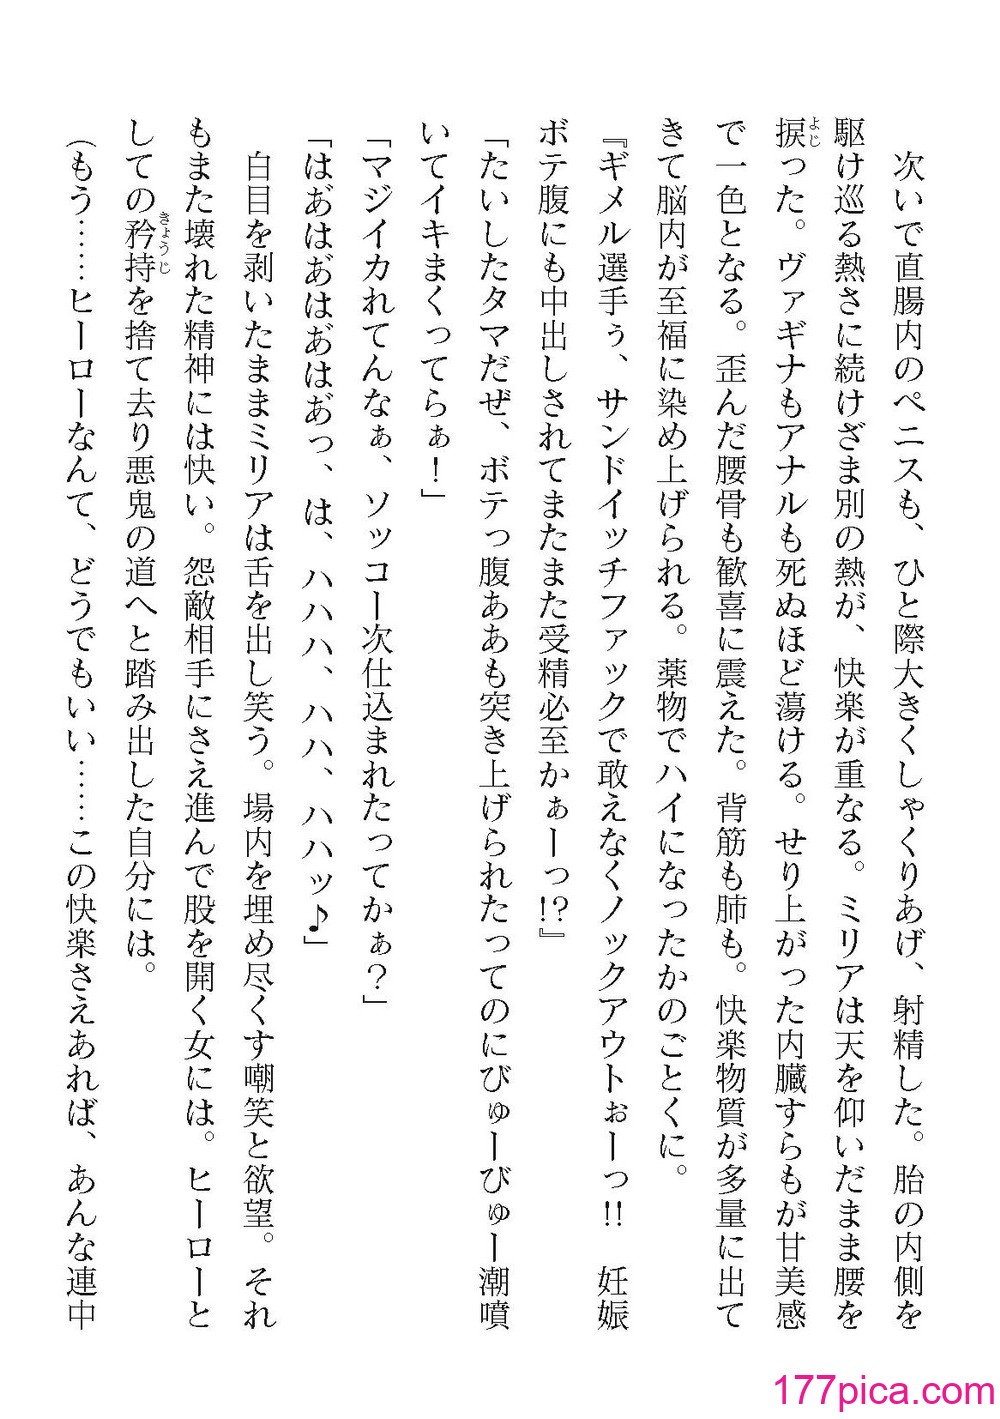 次いで直腸内のペニスも、ひと際大きくしゃくりあげ、射精した。胎の内側を
駆け巡る熱さに続けざま別の熱が、快楽が重なる。ミリアは天を仰いだまま腰を
捩った。ヴァギナもアナルも死ぬほど蕩ける。せり上がった内臓すらもが甘美感
で一色となる。歪んだ腰骨も歓喜に震えた。背筋も肺も。快楽物質が多量に出て
きて脳内が至福に染め上げられる。薬物でハイになったかのごとくに。
『ギメル選手ぅ、サンドイッチファックで敢えなくノックアウトぉーっ!! 妊娠
ボテ腹にも中出しされてまたまた受精必至かぁーっ!?』
「たいしたタマだぜ、ボテっ腹ああも突き上げられたってのにびゅーびゅー潮噴
いてイキまくってらぁ！」
「マジイカれてんなぁ、ソッコー次仕込まれたってかぁ？」
「はあ゙はあ゙はあ゙はあ゙っ、は、ハハハ、ハハ、ハハッ♪」
白目を剥いたままミリアは舌を出し笑う。場内を埋め尽くす嘲笑と欲望。それ
もまた壊れた精神には快い。怨敵相手にさえ進んで股を開く女には。ヒーローと
しての矜持を捨て去り悪鬼の道へと踏み出した自分には。
（もう……ヒーローなんて、どうでもいい……この快楽さえあれば、あんな連中
よじ
きょうじ
177pica.com